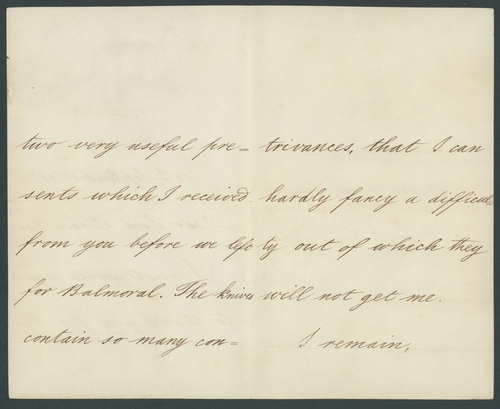 two very useful pre=
sents which I received
from you before we left
for Balmoral. The knives
contain so many con=
trivances, that I can
hardly fancy a difficul=
ty out of which they
will not get me.
I remain,